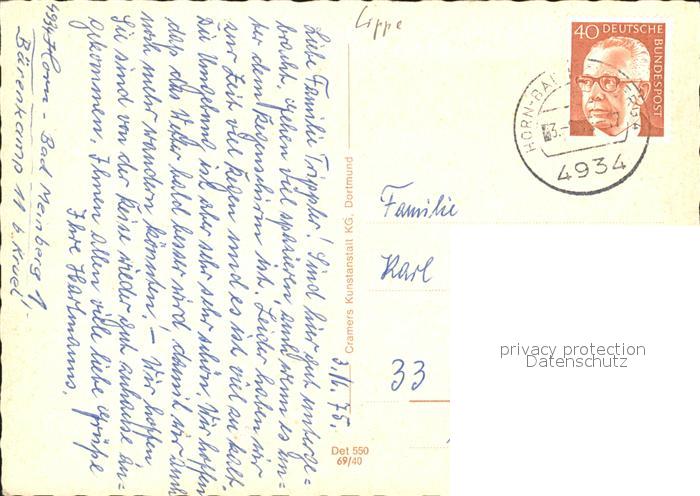 4934 Horn - Bad Meinberg 1
Bärenkamp 11 b.
Lippe
3./6. 75.
Liebe Familie Trippler! Sind hier gut unterge-
bracht, gehen viel spazieren, auch wenn es un-
ter dem Regenschirm ist. Leider haben wir
zur Zeit viel Regen und es ist viel zu kalt.
Die Umgebung ist aber sehr sehr schön. Wir hoffen
das das Wetter bald besser wird damit wir auch
noch mehr wandern könnten. — Wir hoffen
Sie sind von der Reise wieder gut zuhause an-
gekommen. Ihnen allen viele liebe Grüße
Ihre Hartmanns.
Cramers Kunstanstalt KG. Dortmund
Det 550
69/40
40 DEUTSCHE
BUNDESPOST
HORN-BAD
4934
Familie
Karl
33
privacy protection
Datenschutz